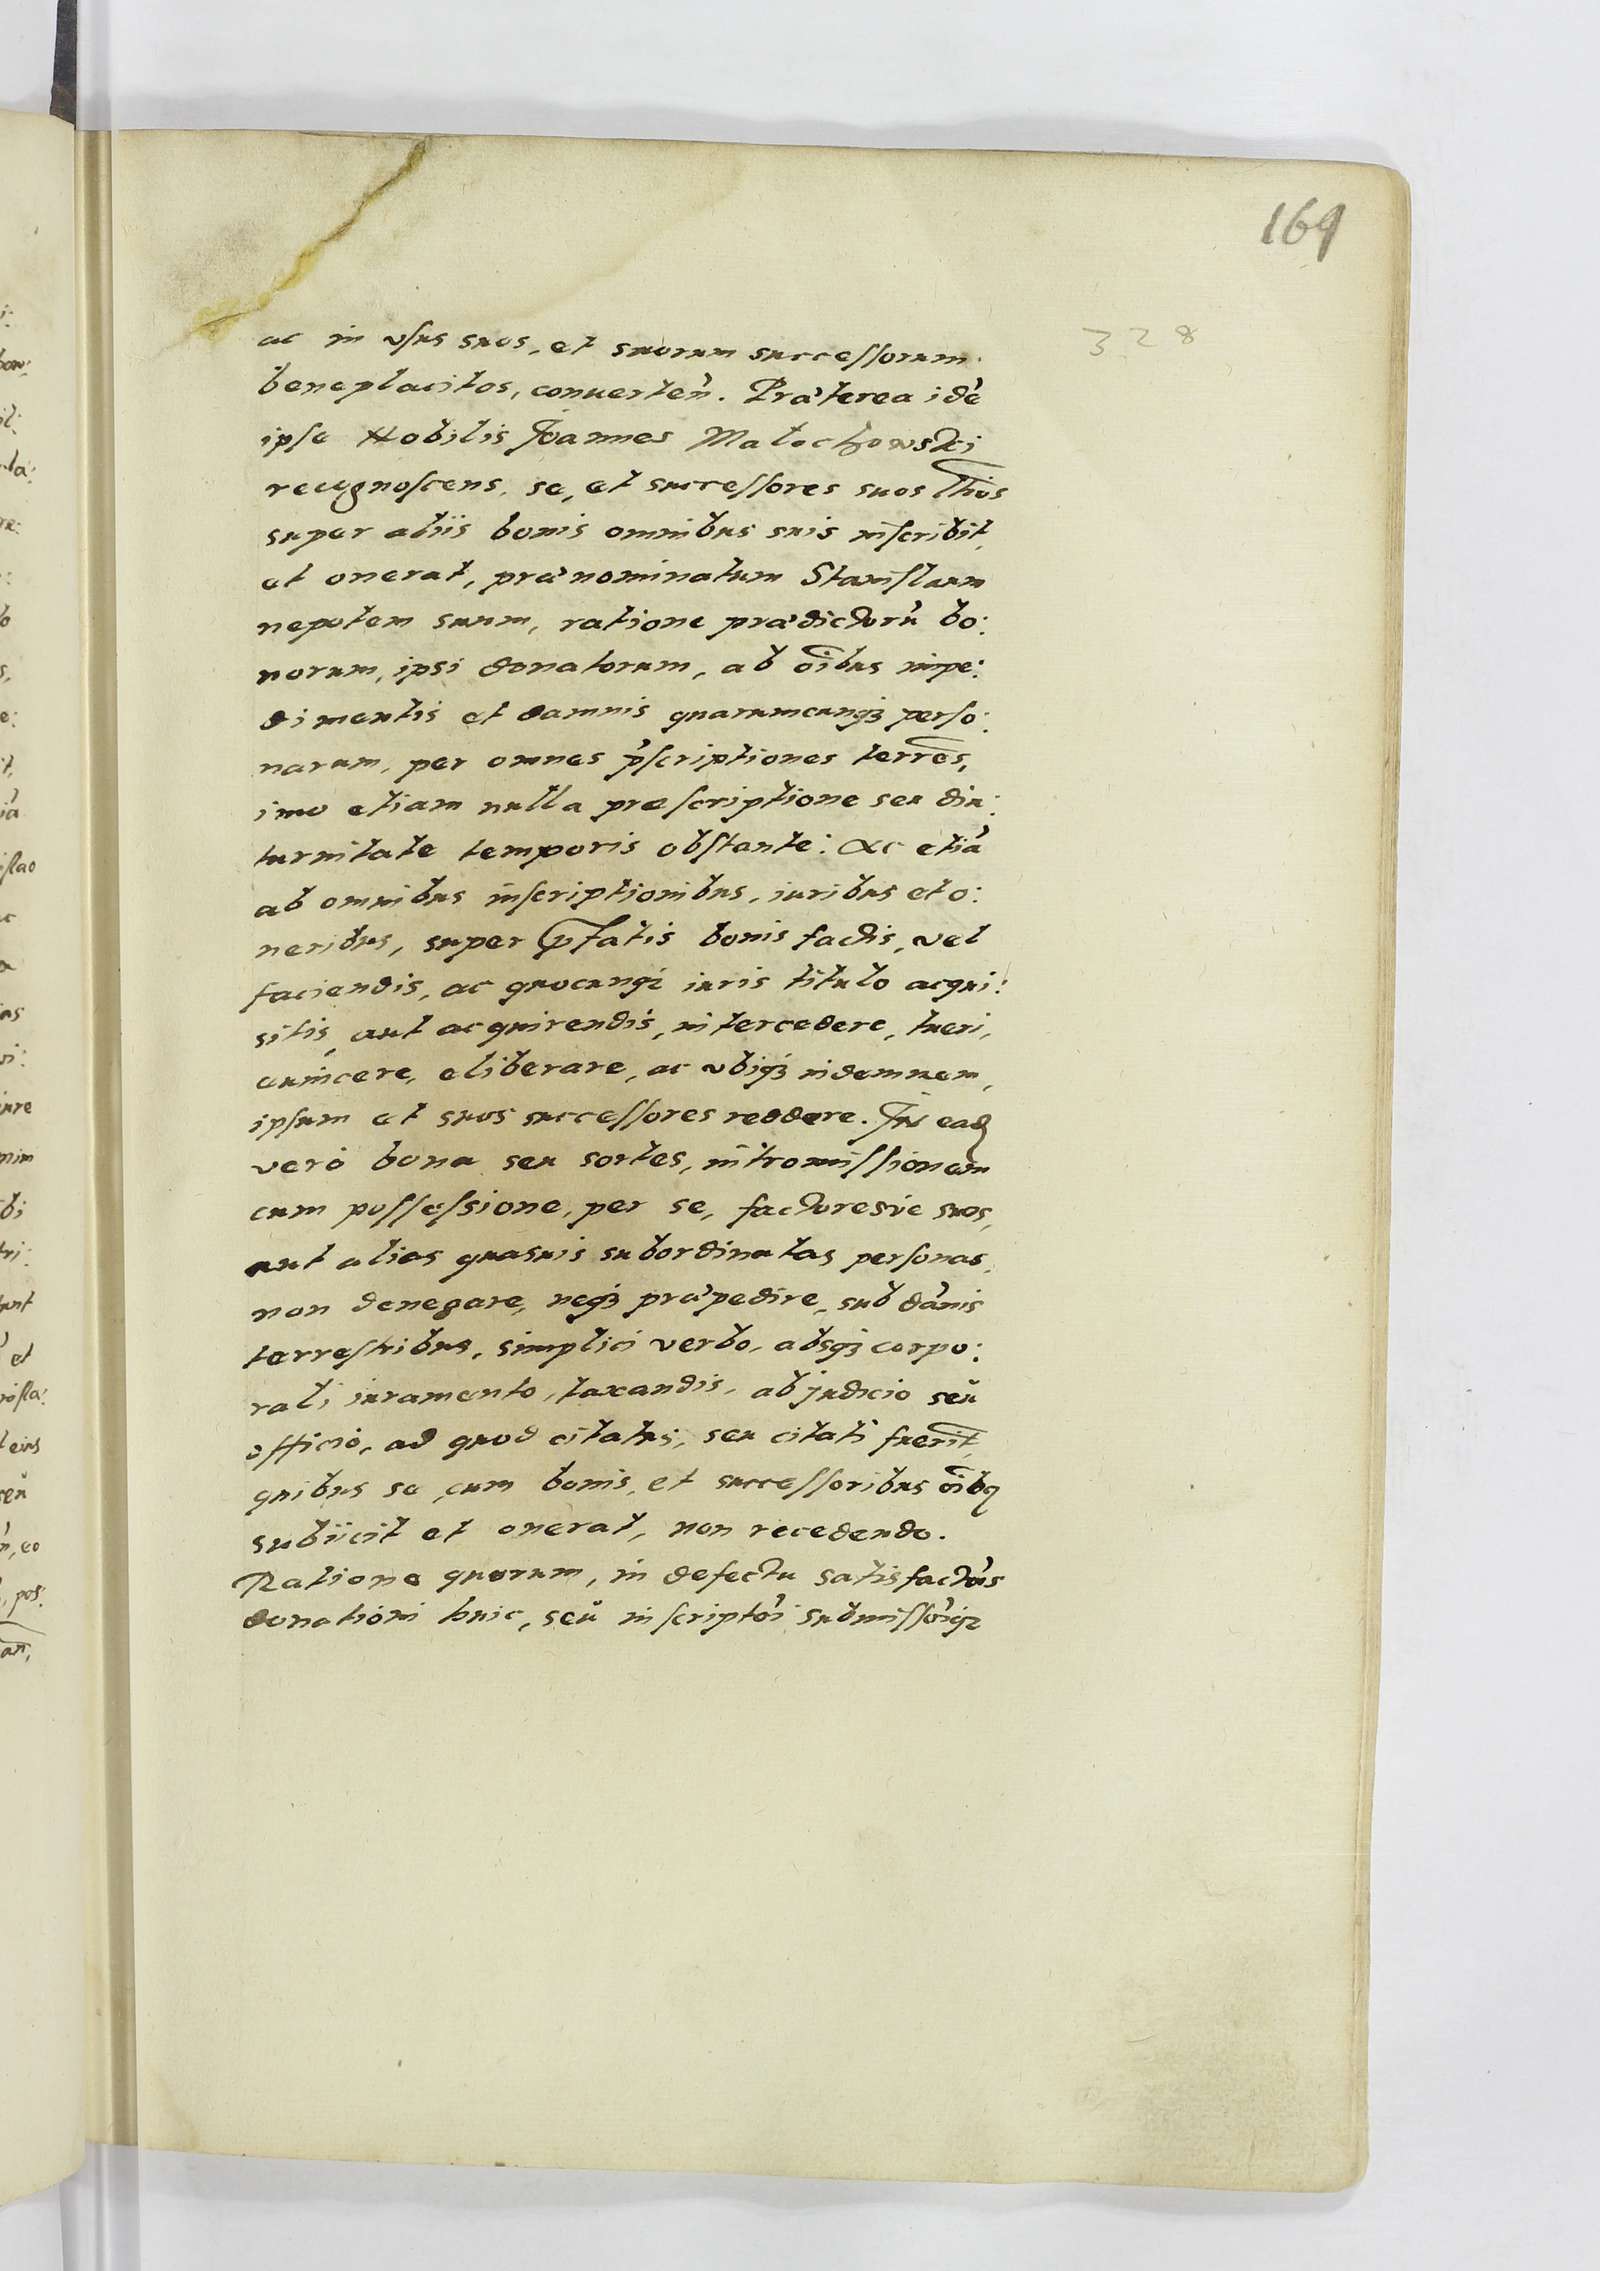 169
328
ac in vsus suos, et suorum successorum
beneplacitos, conuerten̄. Præterea idē
ipse Nobilis Joannes Malochowski
recognoscens, se, et successores suos lthos
super aliis bonis omnibus suis inscribit,
et onerat, prænominatum Stanislaum
nepotem suum, ratione prædictorū bo:
norum, ipsi donatorum, ab oībus impe:
dimentis et damnis quarumcunqȝ perso:
narum, per omnes p̄scriptiones terrēs,
imo etiam nulla præscriptione seu diu:
turnitate temporis obstante: Ac etiā
ab omnibus inscriptionibus, iuribus et o:
neribus, super p̄fatis bonis factis, vel
faciendis, ac quocunqȝ iuris titulo acqui:
sitis, aut acquirendis, intercedere, tueri,
euincere, eliberare, ac vbiqȝ indemnem,
ipsum et suos successores reddere. In eadꝫ
verò bona seu sortes, intromissionem
cum possessione, per se, factoresve suos,
aut alias quasuis subordinatas personas,
non denegare, neqȝ præpedire, sub dānis
terrestribus, simplici verbo, absqȝ corpo:
rali iuramento, taxandis, ab judicio seu
officio, ad quod citatus, seu citati fuerīt,
quibus se cum bonis, et successoribus oībꝫ
subiicit et onerat, non recedendo.
Ratione quorum, in defectu satisfactōis
donationi huic, seū inscriptōi submissōiqȝ